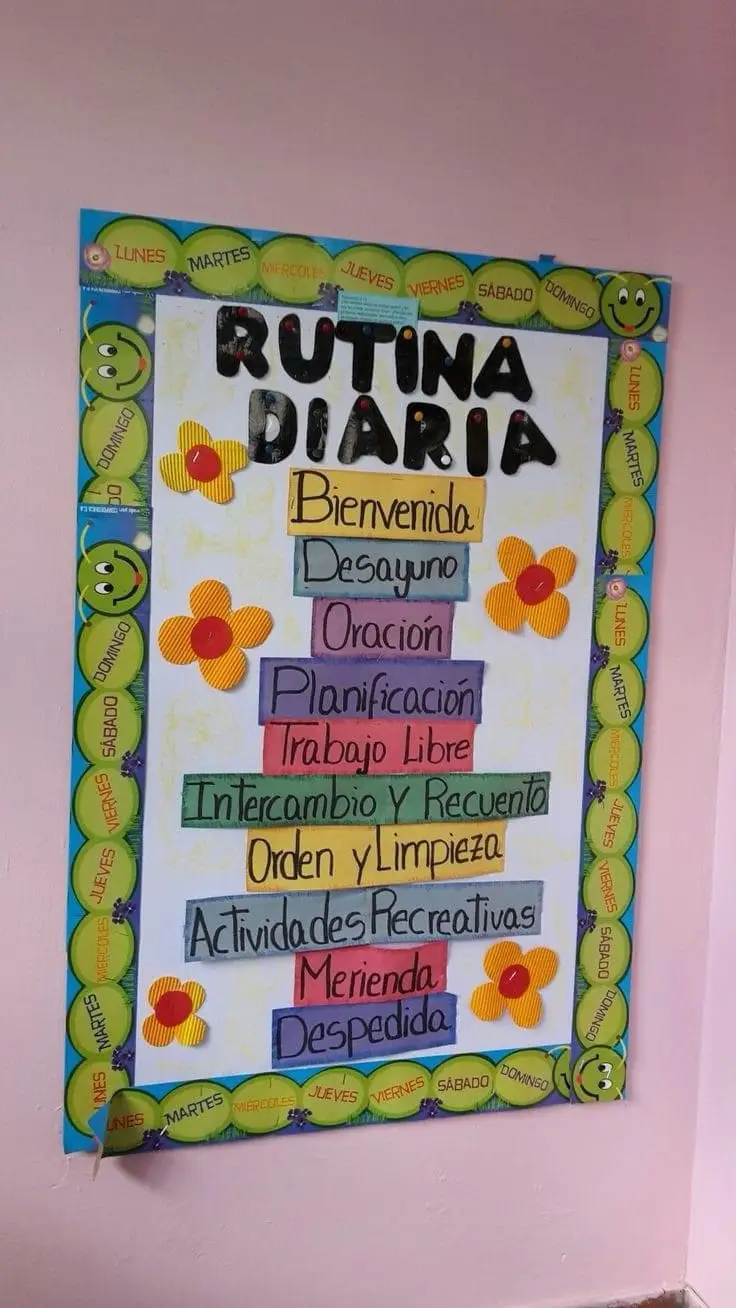 LUNES MARTES MIERCOLES JUEVES VIERNES SÁBADO DOMINGO
RUTINA
DIARIA
Bienvenida
Desayuno
Oración
Planificación
Trabajo Libre
Intercambio Y Recuento
Orden y Limpieza
Actividades Recreativas
Merienda
Despedida
DOMINGO
DO
DOMINGO
SÁBADO
VIERNES
JUEVES
MIERCOLES
MARTES
UNES
LUNES
MARTES
MIERCOLES
LUNES
MARTES
MIERCOLES
JUEVES
VIERNES
SÁBADO
DOMINGO
UNES MARTES MIERCOLES JUEVES VIERNES SÁBADO DOMINGO